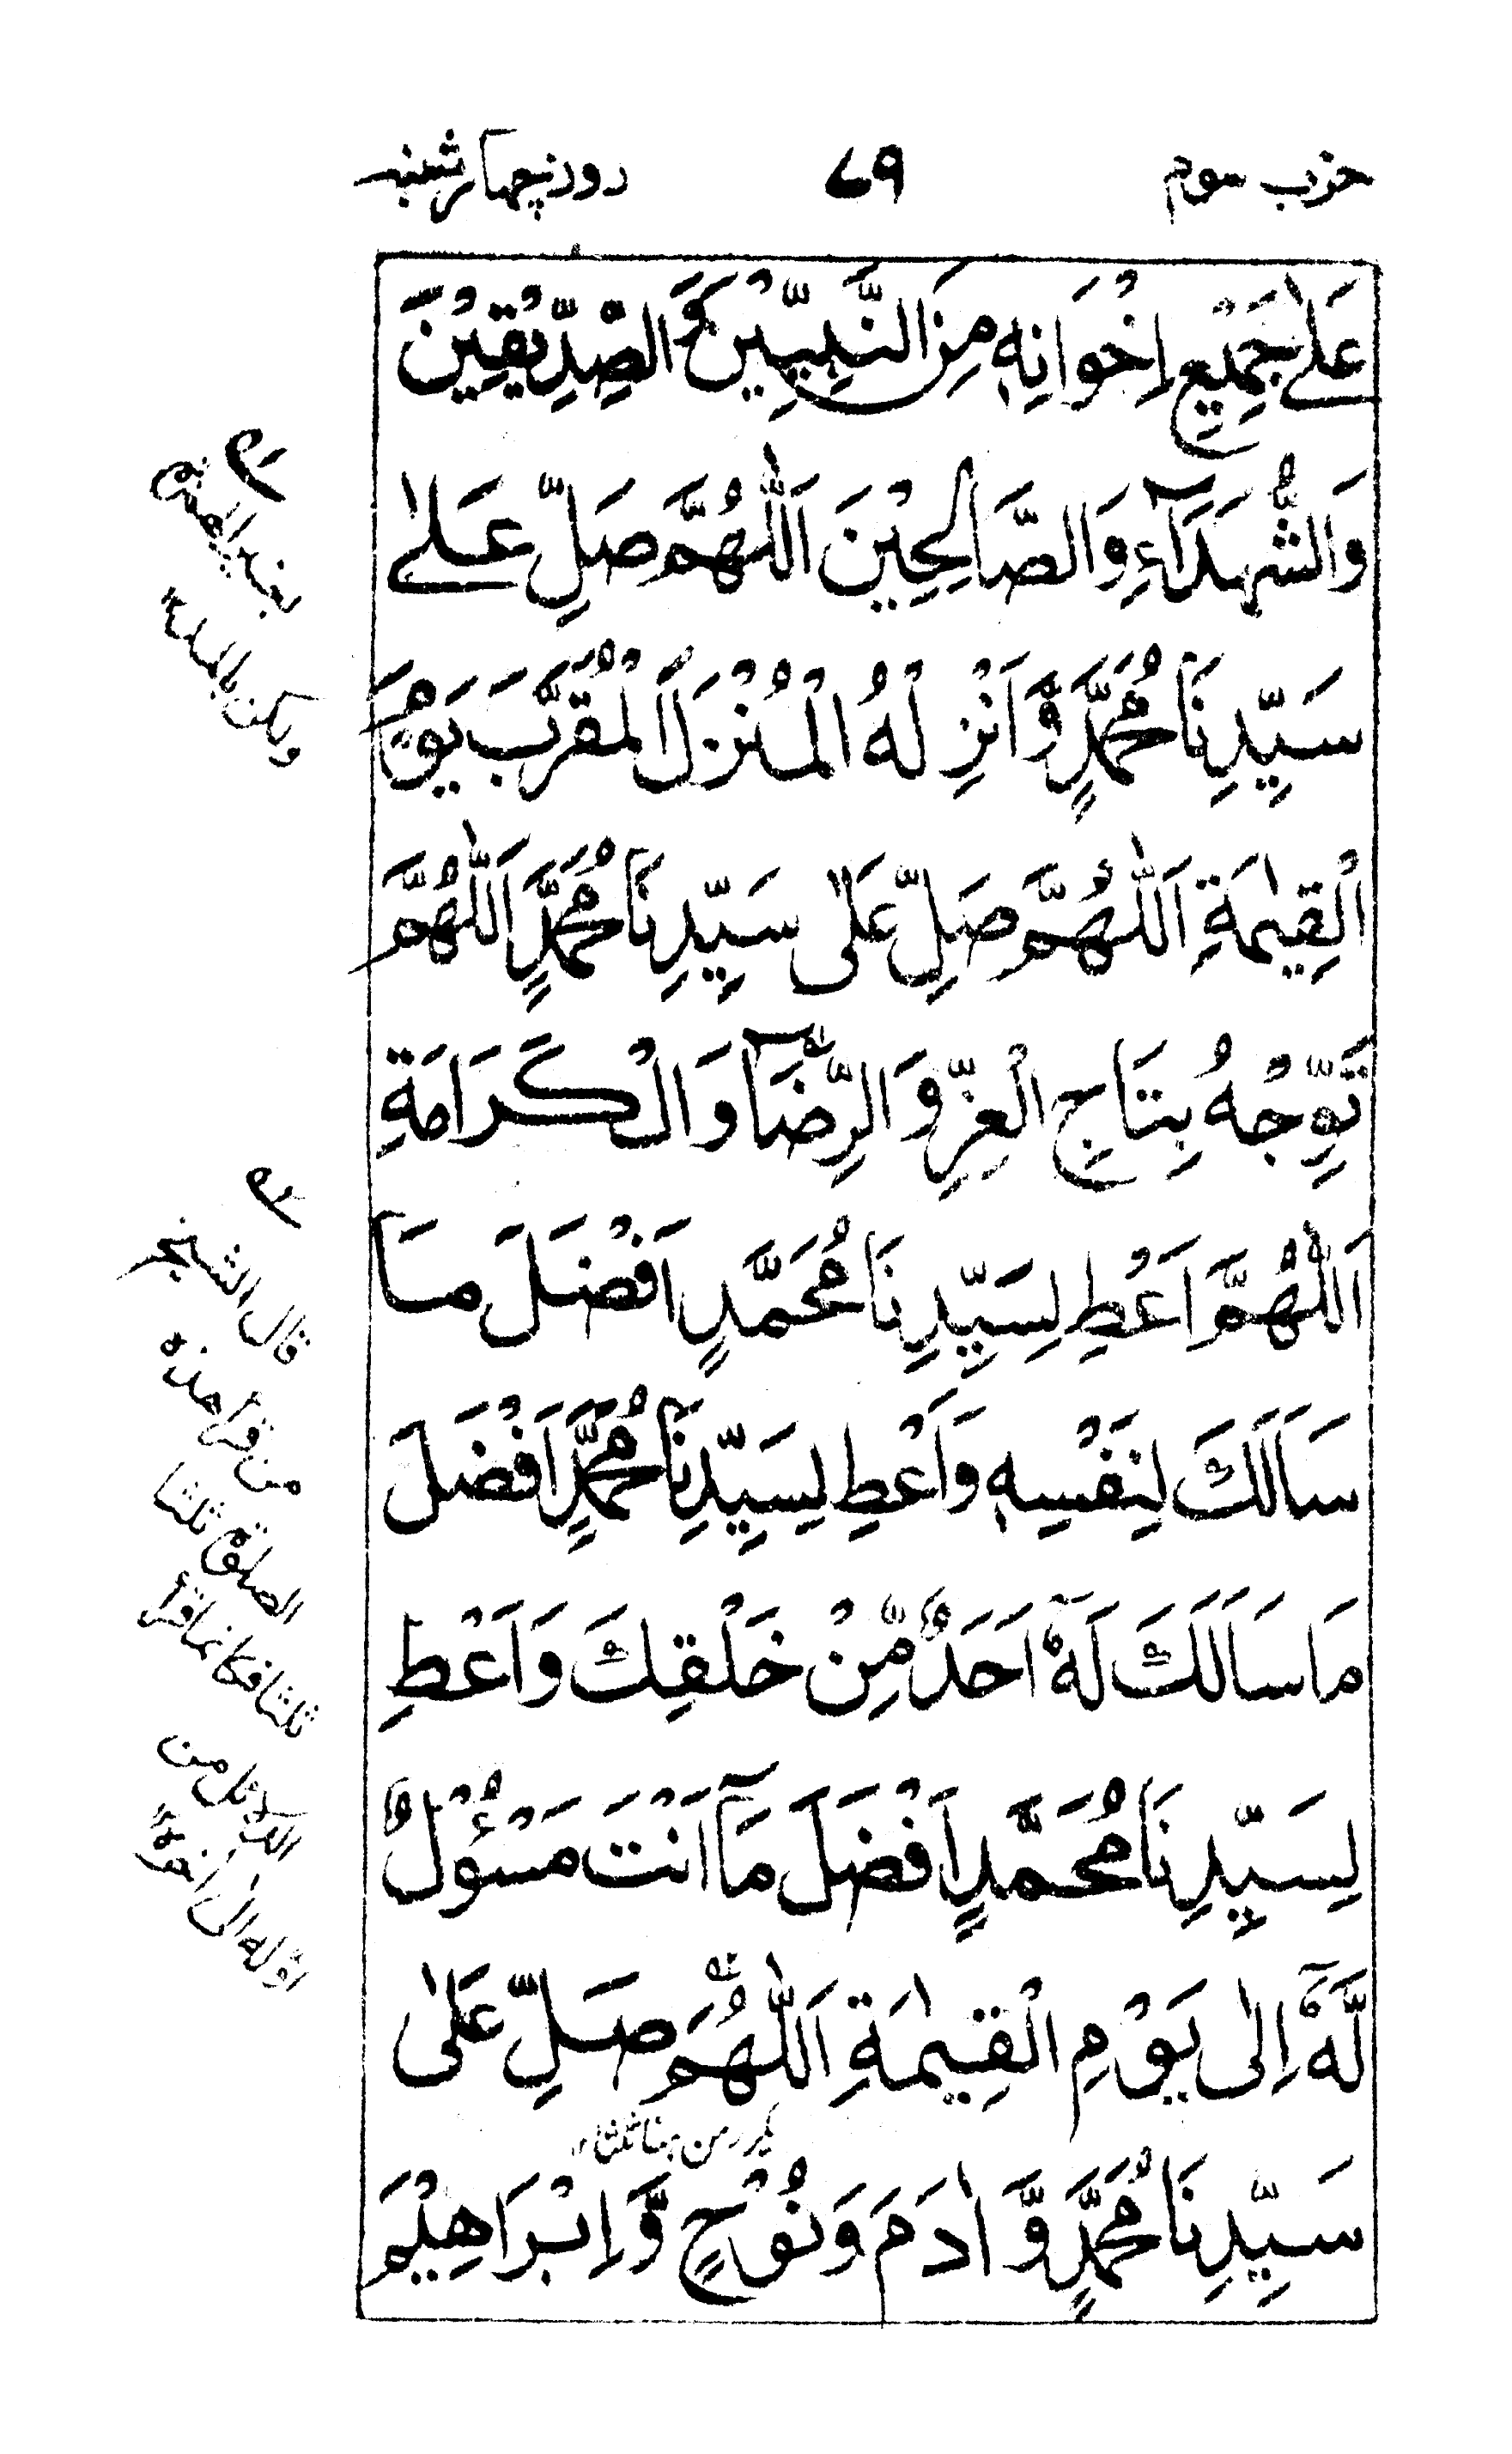 حزب سوم ٧٩ روز چهار شنبه
عَلٰى جَمِيْعِ اِخْوَانِهٖ مِنَ النَّبِيِّيْنَ وَالصِّدِّيْقِيْنَ
وَالشُّهَدَآءِ وَالصَّالِحِيْنَ اَللّٰهُمَّ صَلِّ عَلٰى
سَيِّدِنَا مُحَمَّدٍ وَّاَنْزِلْهُ الْمُنْزَلَ الْمُقَرَّبَ يَوْمَ
الْقِيٰمَةِ اَللّٰهُمَّ صَلِّ عَلٰى سَيِّدِنَا مُحَمَّدٍ اَللّٰهُمَّ
تَوِّجْهُ بِتَاجِ الْعِزِّ وَالرِّضَآ وَالْكَرَامَةِ
اَللّٰهُمَّ اَعْطِ لِسَيِّدِنَا مُحَمَّدٍ اَفْضَلَ مَا
سَاَلَكَ لِنَفْسِهٖ وَاَعْطِ لِسَيِّدِنَا مُحَمَّدٍ اَفْضَلَ
مَا سَاَلَكَ لَهٗٓ اَحَدٌ مِّنْ خَلْقِكَ وَاَعْطِ
لِسَيِّدِنَا مُحَمَّدٍ اَفْضَلَ مَآ اَنْتَ مَسْئُوْلٌ
لَّهٗٓ اِلٰى يَوْمِ الْقِيٰمَةِ اَللّٰهُمَّ صَلِّ عَلٰى
يكرر من هنا ثلثا
سَيِّدِنَا مُحَمَّدٍ وَّاٰدَمَ وَنُوْحٍ وَّاِبْرَاهِيْمَ
قال الشيخ
من قرأ هذه
الصلوة ثلثا
ثلثا فكانما قرأ
الدلائل من
اوله الى اخره